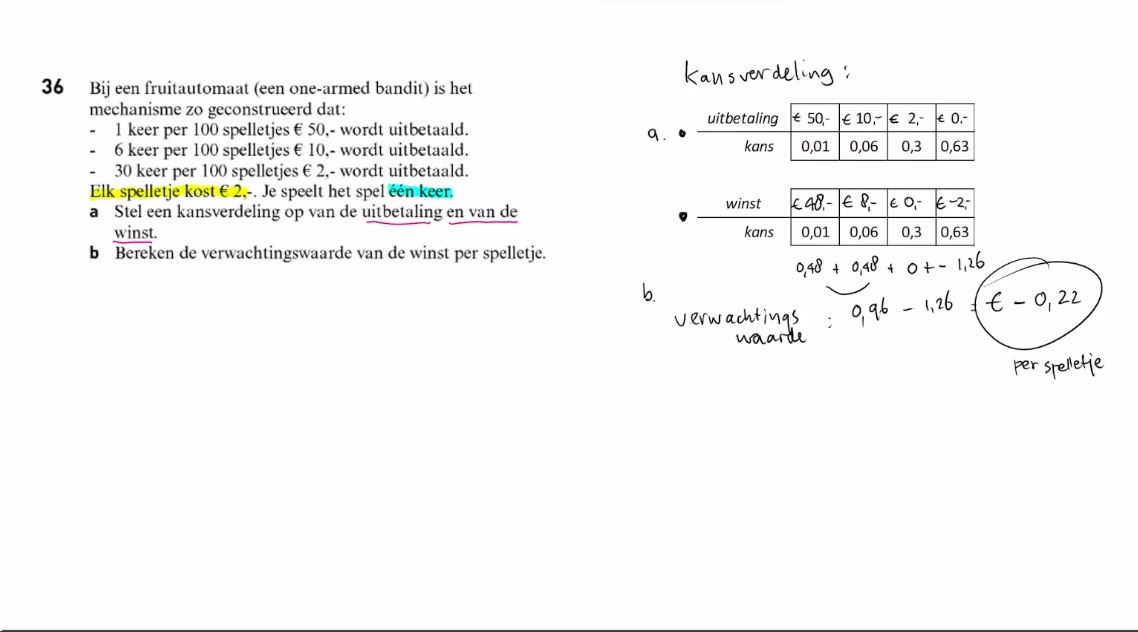 36 Bij een fruitautomaat (een one-armed bandit) is het
mechanisme zo geconstrueerd dat:
- 1 keer per 100 spelletjes € 50,- wordt uitbetaald.
- 6 keer per 100 spelletjes € 10,- wordt uitbetaald.
- 30 keer per 100 spelletjes € 2,- wordt uitbetaald.
Elk spelletje kost € 2,-. Je speelt het spel één keer.
a Stel een kansverdeling op van de uitbetaling en van de
winst.
b Bereken de verwachtingswaarde van de winst per spelletje.
kansverdeling:
a. • uitbetaling € 50,- € 10,- € 2,- € 0,-
kans 0,01 0,06 0,3 0,63
• winst € 48,- € 8,- € 0,- € -2,-
kans 0,01 0,06 0,3 0,63
0,48 + 0,48 + 0 + - 1,26
b. verwachtings
waarde : 0,96 - 1,26 = € - 0,22
per spelletje